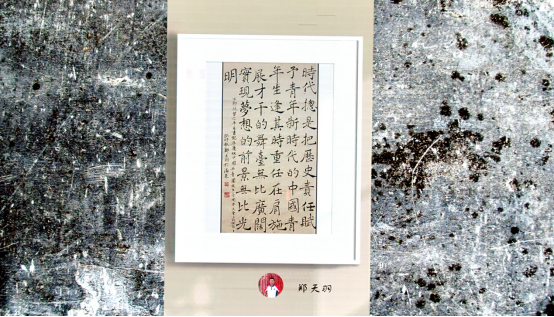 時代總是把歷史責任賦
予青年新時代的中國青
年生逢其時重任在肩施
展才干的舞臺無比廣闊
實現夢想的前景無比光
明
邹天羽